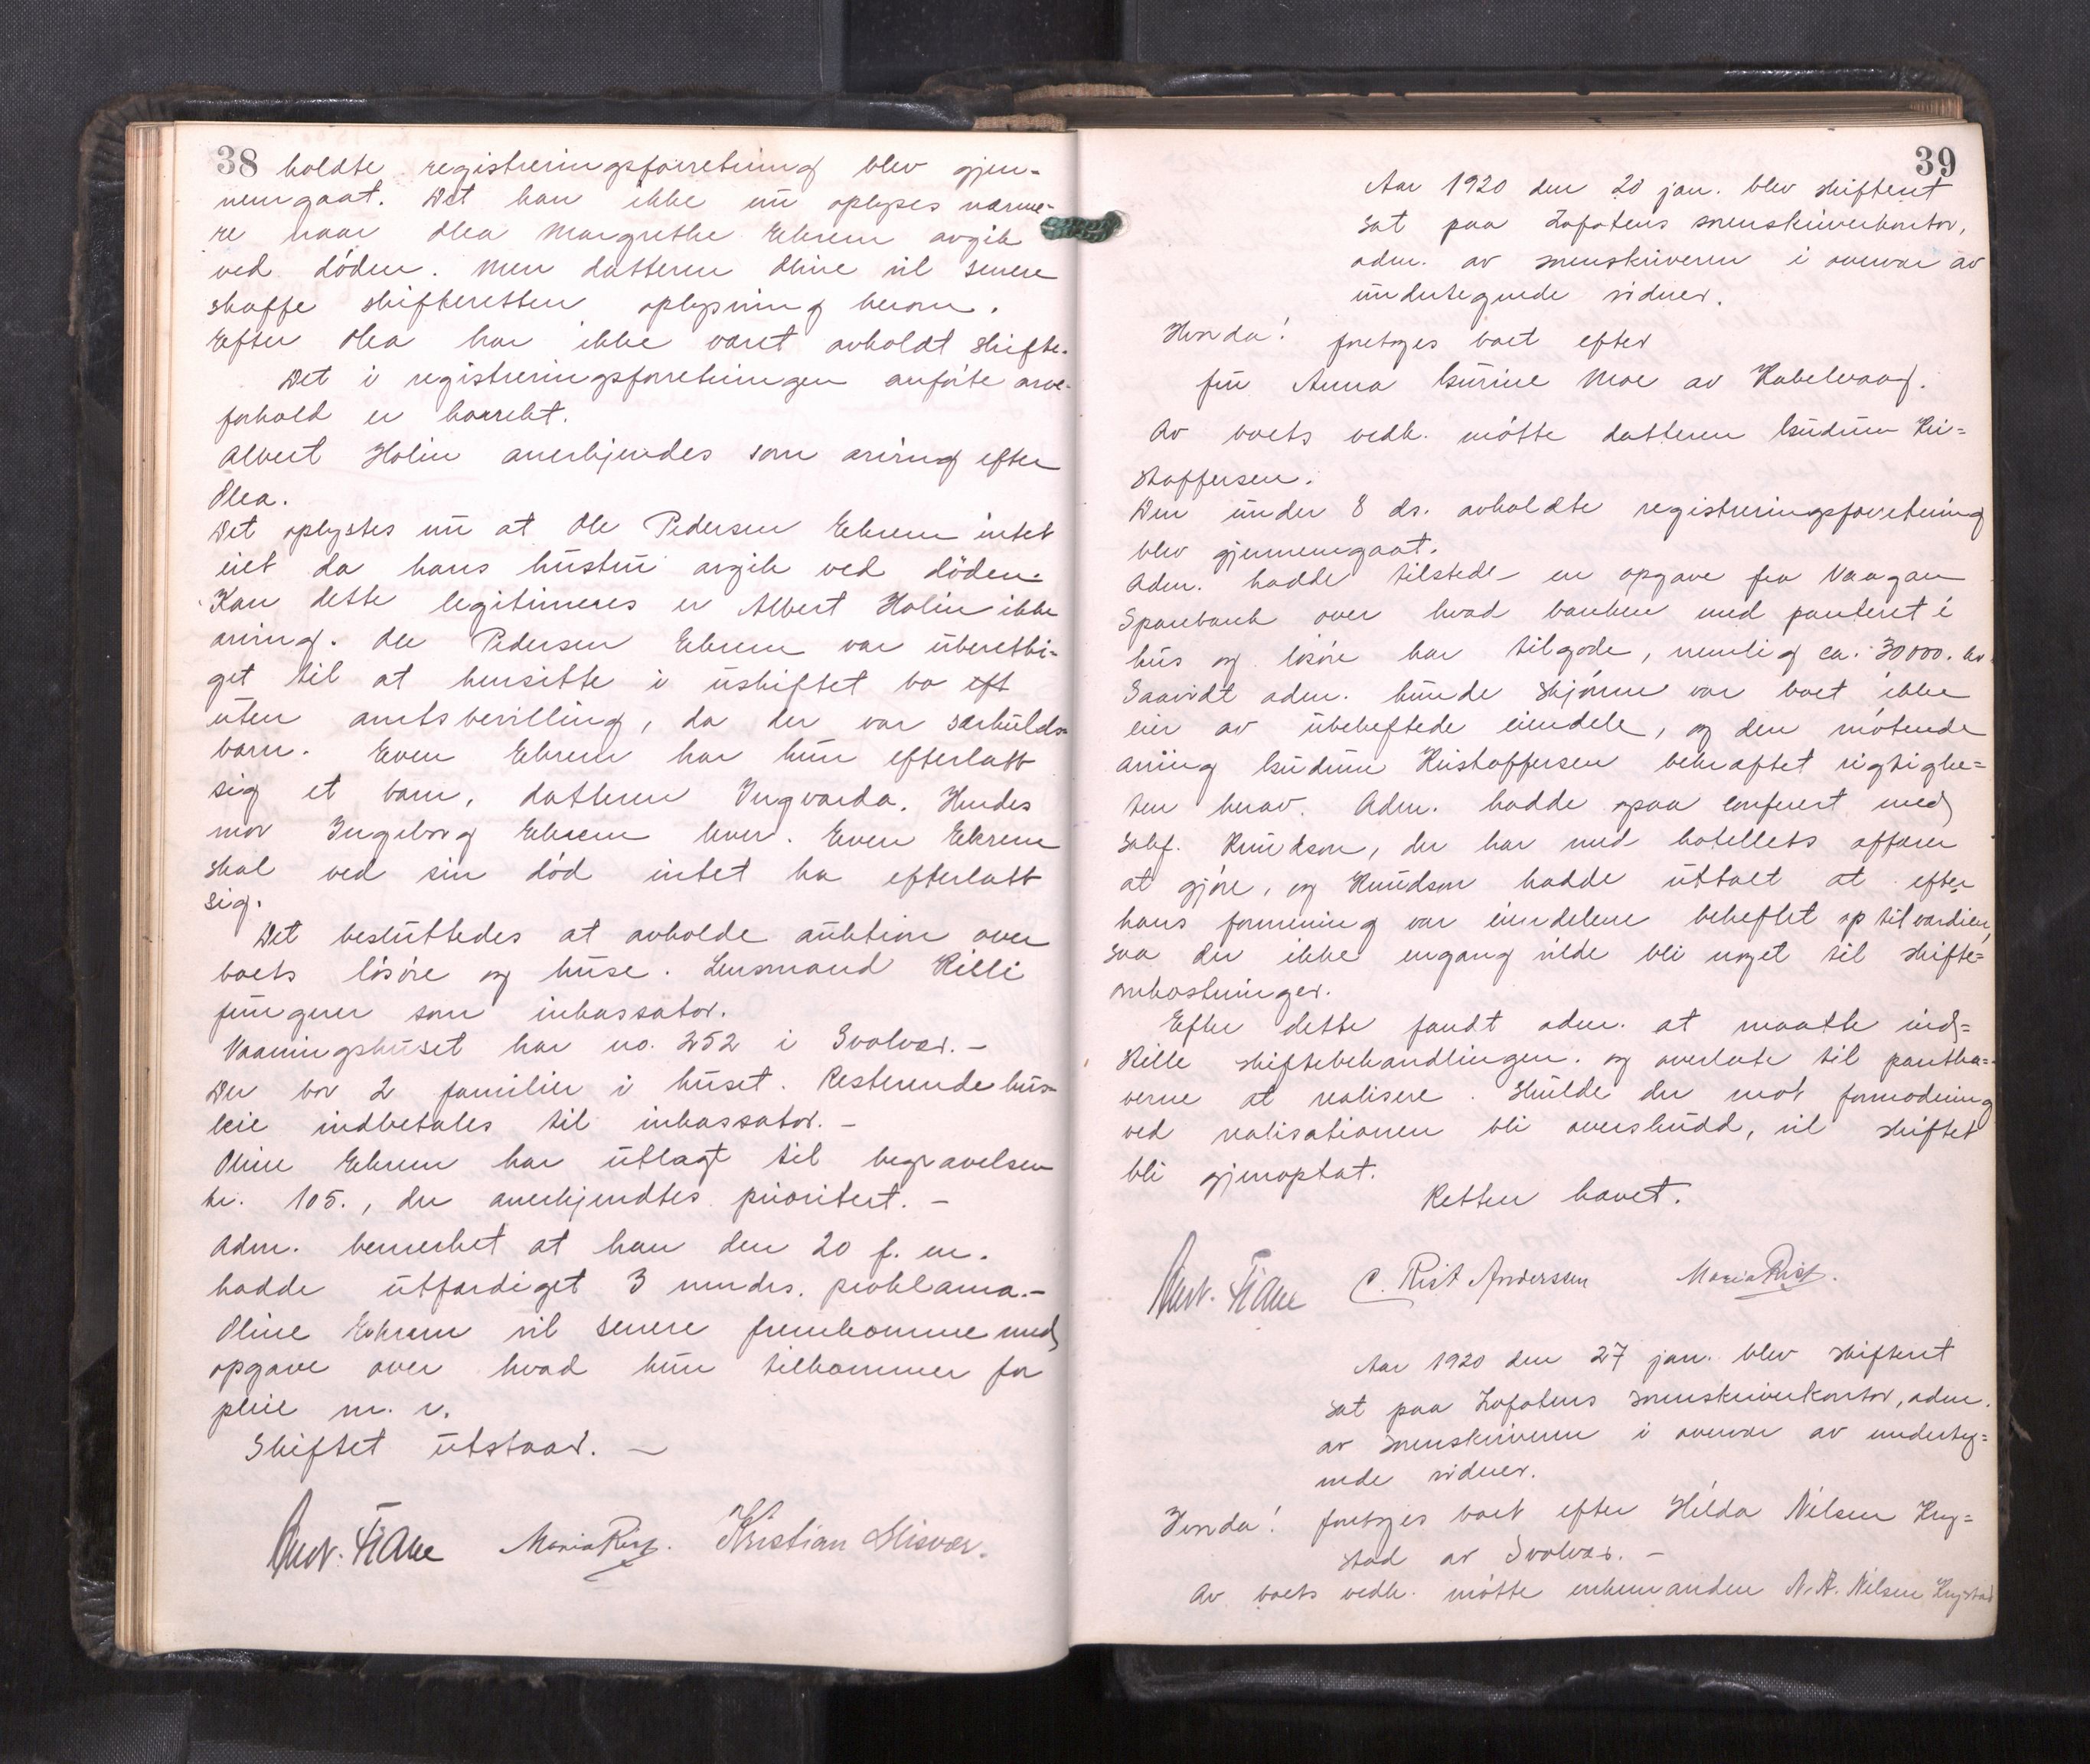 38 holdte registreringsforretning blev gjen-
nemgaat. Det kan ikke nu oplyses nærme-
re naar Olea Margrethe Ekrem avgik
ved döden. Men datteren Oline vil senere
skaffe skifteretten oplysning herom.
Efter Olea har ikke været avholdt skifte.
Det i registreringsforretningen anförte arve-
forhold er korrekt.
Albert Holm anerkjendes som arving efter
Olea.
Det oplystes nu at Ole Pedersen Ekrem intet
eiet da hans hustru avgik ved döden.
Kan dette legitimeres er Albert Holm ikke
arving. Ole Pedersen Ekrem var uberetti-
get til at hensitte i uskiftet bo eft
uten amtsbevilling, da der var særkulds-
barn. Even Ekrem har kun efterlatt
sig et barn, datteren Ingvarda. Hendes
mor Ingeborg Ekrem lever. Even Ekrem
skal ved sin död intet ha efterlatt
sig.
Det besluttedes at avholde auktion over
boets lösöre og huse. Lensmand Killi
fungerer som inkassator.
Vaaningshuset har no. 252 i Svolvær. -
Der bor 2 familier i huset. Resterende hus-
leie indbetales til inkassator. -
Oline Ekrem har utlagt til begravelsen
kr. 105., der anerkjendtes prioritert. -
Adm. bemerket at han den 20 f. m.
hadde utfærdiget 3 mndrs. proklama. -
Oline Ekrem vil senere fremkomme med
opgave over hvad hun tilkommer for
pleie m. v.
Skiftet utstaar. -
Maria Rist. Kristian
39
Aar 1920 den 20 jan. blev skifteret
sat paa Lofotens sorenskriverkontor,
adm. av sorenskriveren i overvær av
undertegnede vidner.
Hvorda! foretoges boet efter
fru Anna Gurine Moe av Kabelvaag.
Av boets vedk. mötte datteren Gudrun Kri-
stoffersen.
Den under 8 ds. avholdte registreringsforretning
blev gjennemgaat.
Adm. hadde tilstede en opgave fra Vaagan
Sparebank over hvad banken med panteret i
hus og lösöre har tilgode, nemlig ca. 30000. kr.
Saavidt adm. kunde skjönne var boet ikke
eier av ubeheftede eiendele, og den mötende
arving Gudrun Kristoffersen bekræftet rigtighe-
ten herav. Adm. hadde ogsaa conferert med
sakf. Knudson, der har med hotellets affærer
at gjöre, og Knudson hadde uttalt at efter
hans formening var eiendelene beheftet op til værdien,
saa der ikke engang vilde bli noget til skifte-
omkostninger.
Efter dette fandt adm. at maatte ind-
stille skiftebehandlingen. og overlate til pantha-
verne at realisere. Skulde der mot formodning
ved realisationen bli overskudd, vil skiftet
bli gjenoptat.
Retten hævet.
C. Rist Anderssen Maria Rist.
Aar 1920 den 27 jan. blev skifteret
sat paa Lofotens sorenskriverkontor, adm.
av sorenskriveren i overvær av underteg-
nede vidner.
Hvorda! foretoges boet efter Hilda Nilsen Kry-
stad av Svolvær. -
Av boets vedk. mötte enkemanden N. A. Nilsen Krystad